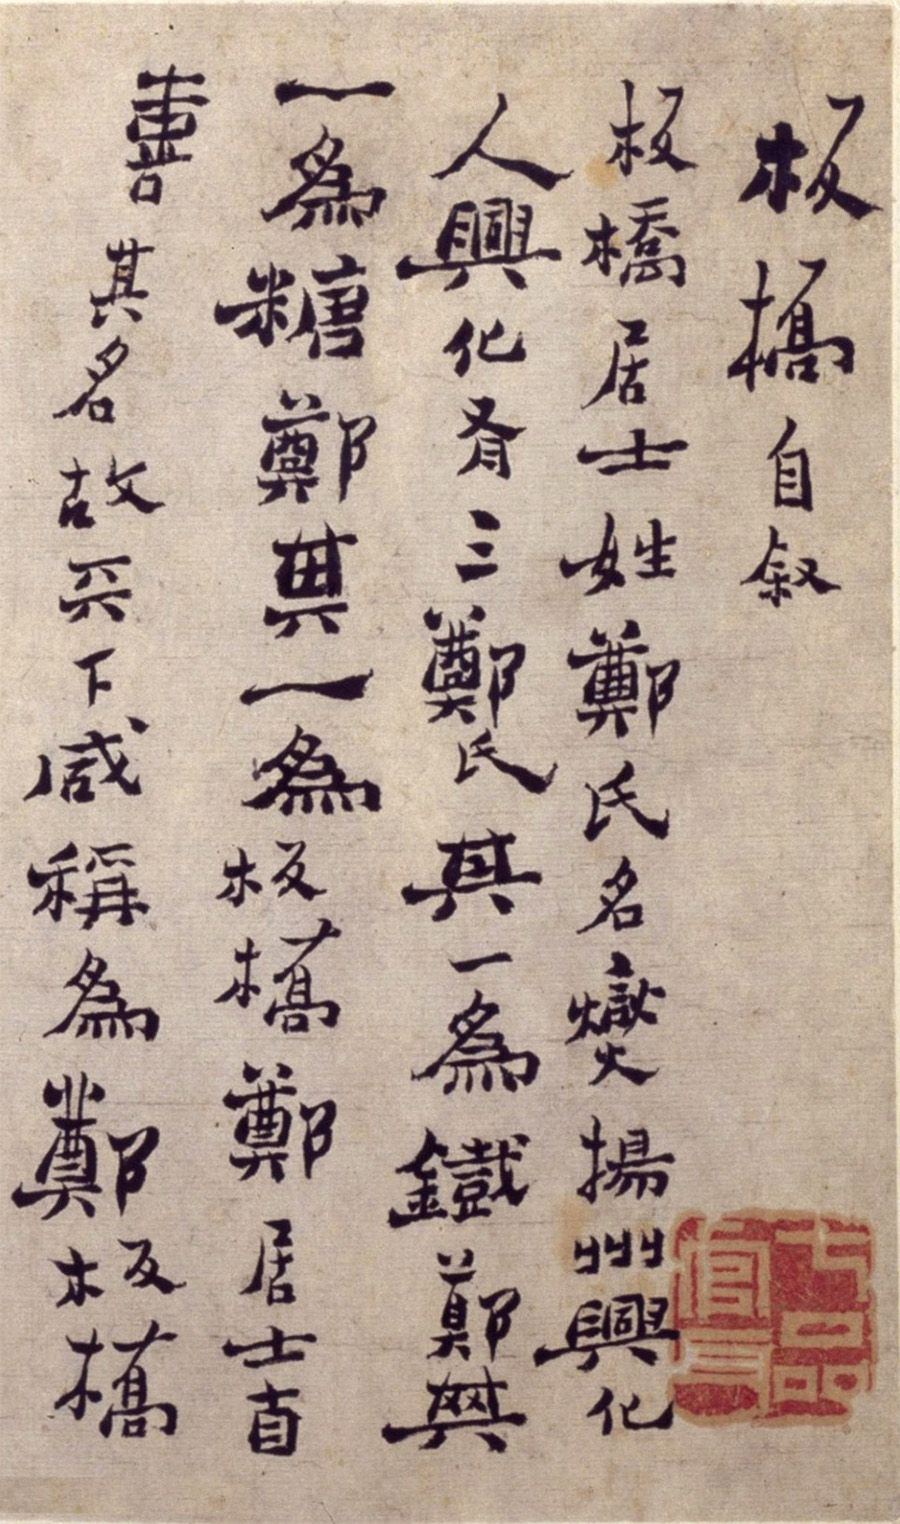 板橋自叙
板橋居士姓鄭氏名燮揚州興化
人興化有三鄭氏其一為鐵鄭其
一為糖鄭其一為板橋鄭居士自
喜其名故兲下咸稱為鄭板橋
七品官耳